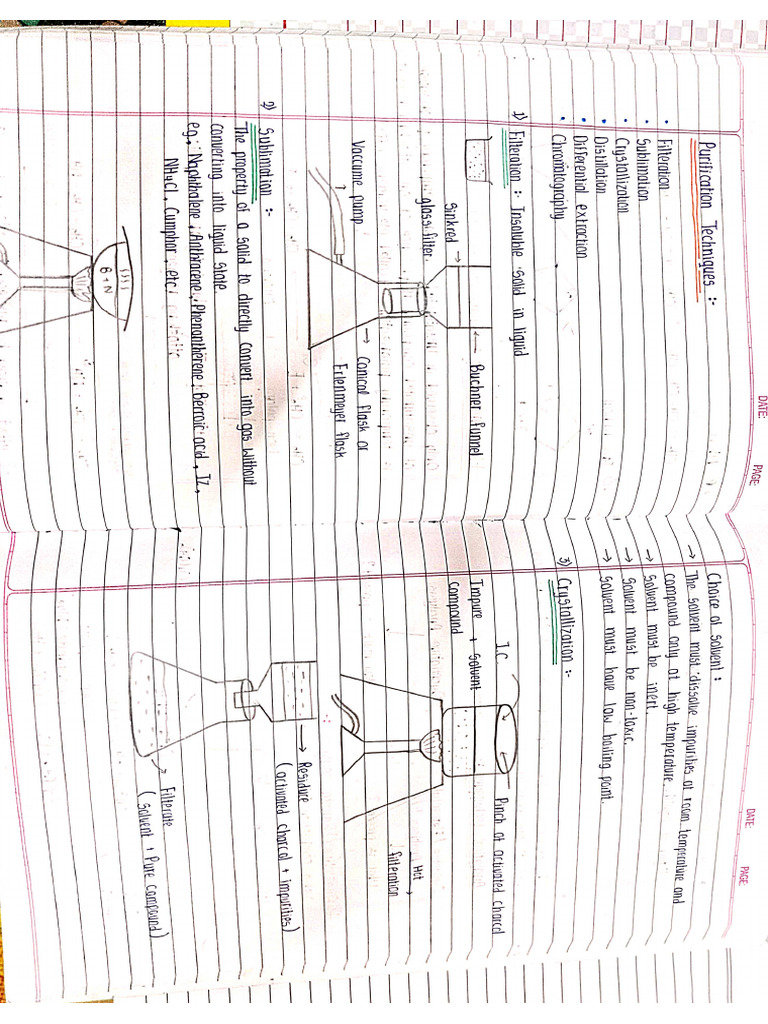 DATE:
PAGE:
Purification Techniques :-
• Filteration
• Sublimation
• Crystallization
• Distillation
• Differential extraction
• Chromatography
1) Filteration :- Insoluble solid in liquid
Buchner funnel
Sinkred
glass filter.
Vaccume pump
Conical flask or
Erlenmeyer flask
2) Sublimation :-
The property of a solid to directly convert into gas without
converting into liquid state.
e.g., Naphthalene, Anthracene, Phenantherene, Benzoic acid, I2,
NH4Cl, Camphor, etc.
B+N
DATE:
PAGE:
Choice of solvent :
→ The solvent must dissolve impurities at room temperature and
compound only at high temperature.
→ Solvent must be inert.
→ Solvent must be non-toxic.
→ Solvent must have low boiling point.
3) Crystallization :-
I.C.
Pinch of activated charcol
Impure + Solvent
compound
Hot
filteration
→ Residue
(activated charcol + impurities)
Filterate
(Solvent + Pure compound)